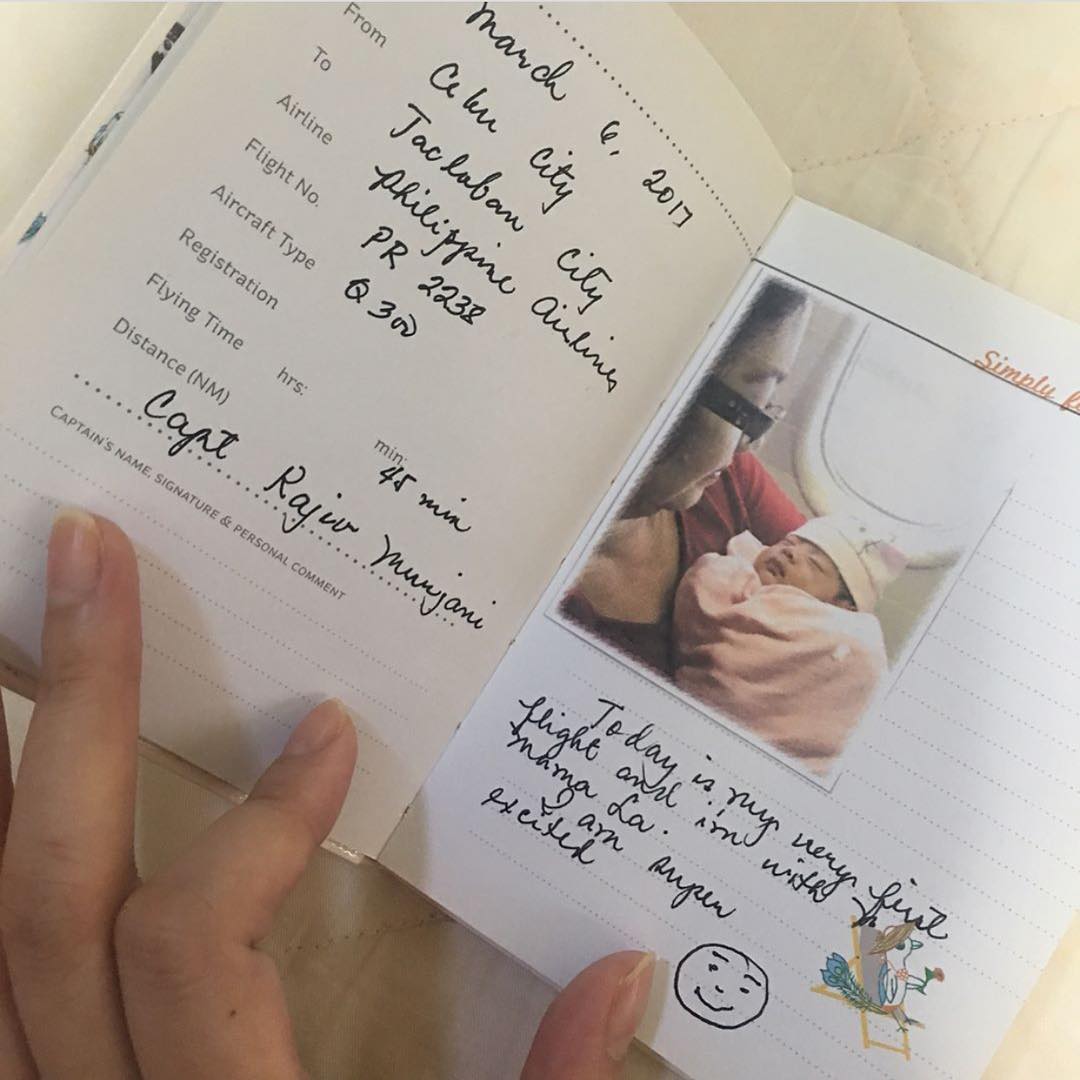 March 6, 2017
From Cebu City
To Tacloban City
Airline Philippine Airlines
Flight No. PR 2238
Aircraft Type Q300
Registration
Flying Time hrs: min: 45 min
Distance (NM)
Capt Rajiv Munjani
CAPTAIN'S NAME, SIGNATURE & PERSONAL COMMENT
Simply
Today is my very first
flight and im with
Mama La.
I am super
excited